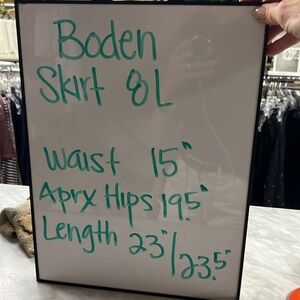 Boden
Skirt 8L
Waist 15"
Aprx Hips 19.5"
Length 23"/23.5"